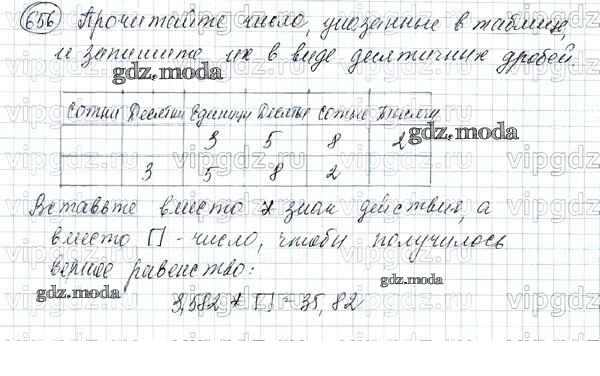 656 Прочитайте числа, указанные в таблице,
и запишите их в виде десятичных дробей.
gdz.moda
Сотни Десятки Единицы Десятые Сотые Тысячн
3 5 8 2
gdz.moda
3 5 8 2
Вставьте вместо * знак действия, а
вместо □ - число, чтобы получилось
верное равенство:
gdz.moda
gdz.moda
3,582 * □ = 35,82
vipgdz.ru